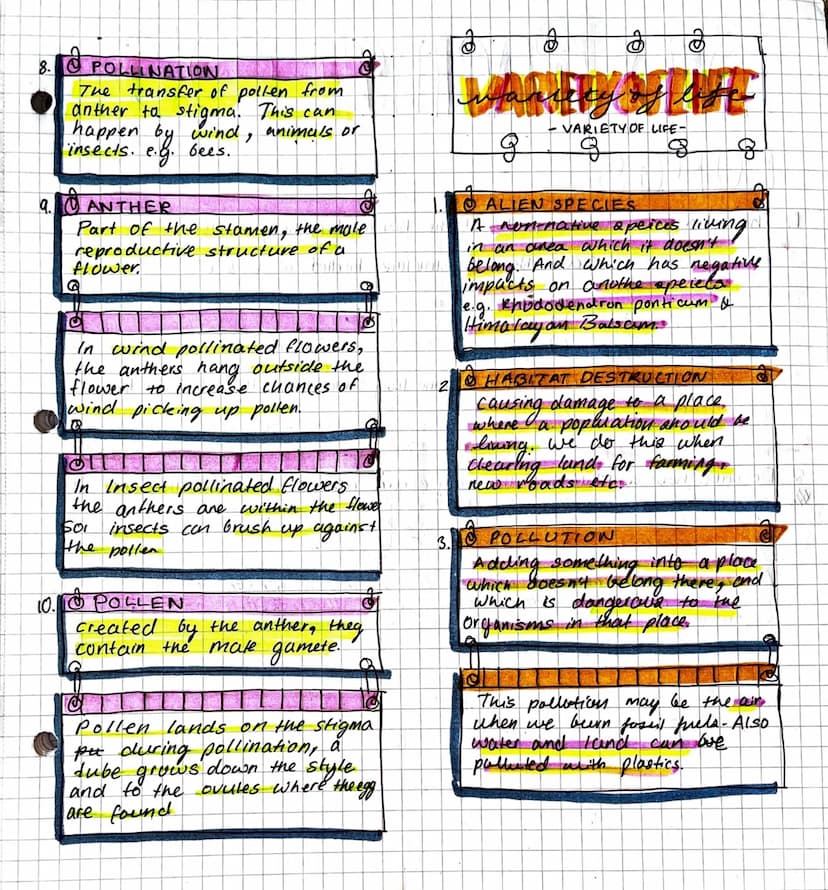 8. POLLINATION
The transfer of pollen from
anther to stigma. This can
happen by wind, animals or
insects. e.g. bees.
9. ANTHER
Part of the stamen, the male
reproductive structure of a
flower.
In wind pollinated flowers,
the anthers hang outside the
flower to increase chances of
wind picking up pollen.
In Insect pollinated flowers
the anthers are within the flower
so insects can brush up against
the pollen
10. POLLEN
created by the anther, they
contain the male gamete.
Pollen lands on the stigma
during pollination, a
tube grows down the style
and to the ovules where the egg
are found
VARIETY OF LIFE
variety of life
- VARIETY OF LIFE -
1. ALIEN SPECIES
A non-native speices living
in an area which it doesn't
belong. And which has negative
impacts on anothe speices
e.g. Rhododendron ponticum &
Himalayan Balsam.
2 HABITAT DESTRUCTION
causing damage to a place
where a population should be
living. We do this when
clearing land for farming,
new roads etc.
3. POLLUTION
Adding something into a place
which doesn't belong there, and
which is dangerous to the
organisms in that place
This pollution may be the air
when we burn fossil fuels. Also
water and land can be
polluted with plastics.